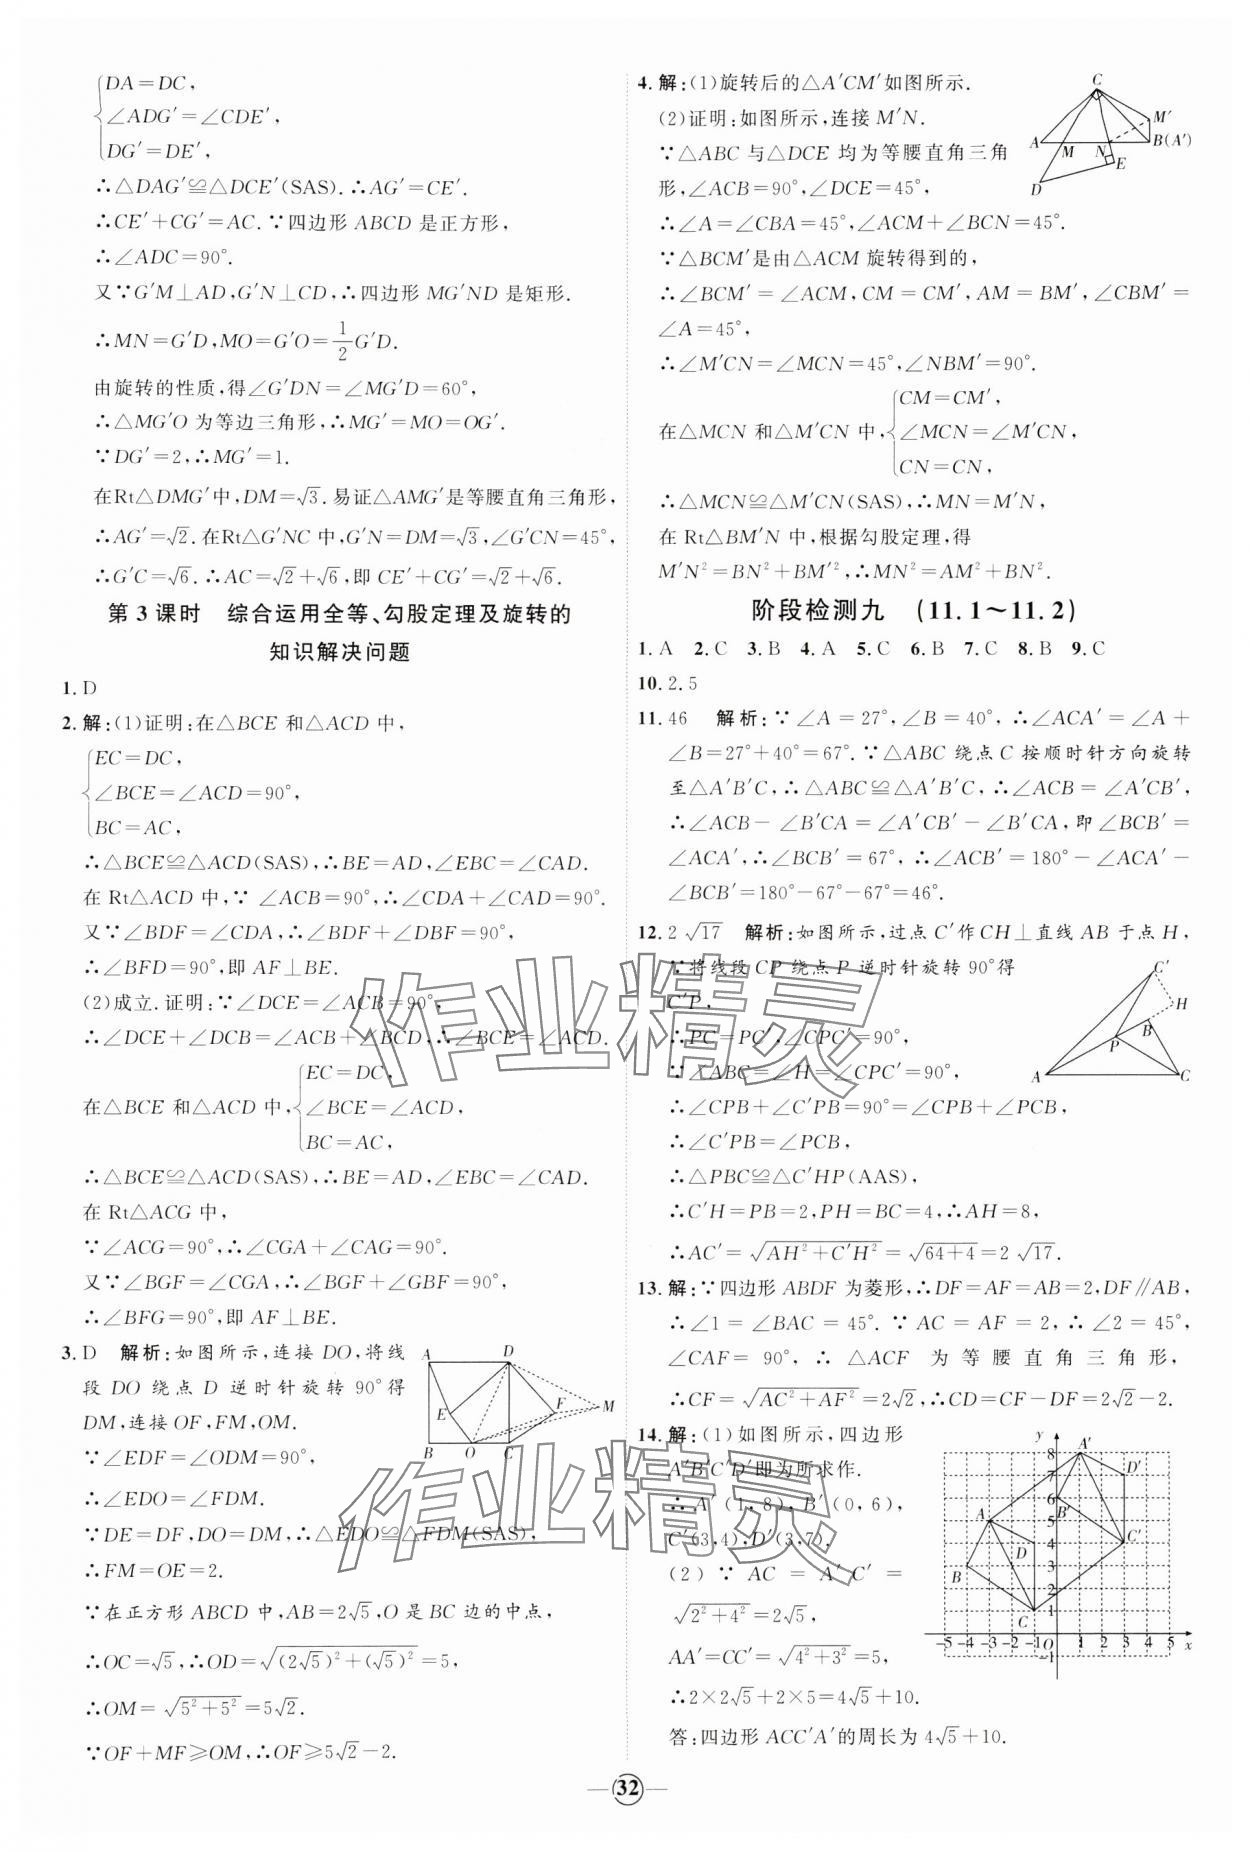 DA=DC,
∠ADG′=∠CDE′,
DG′=DE′,
∴△DAG′≌△DCE′(SAS).∴AG′=CE′.
∴CE′+CG′=AC.∵四边形 ABCD 是正方形,
∴∠ADC=90°.
又∵G′M⊥AD,G′N⊥CD,∴四边形 MG′ND 是矩形.
∴MN=G′D,MO=G′O=1/2G′D.
由旋转的性质,得∠G′DN=∠MG′D=60°,
∴△MG′O 为等边三角形,∴MG′=MO=OG′.
∵DG′=2,∴MG′=1.
在Rt△DMG′中,DM=√3.易证△AMG′是等腰直角三角形,
∴AG′=√2.在Rt△G′NC 中,G′N=DM=√3,∠G′CN=45°,
∴G′C=√6.∴AC=√2+√6,即 CE′+CG′=√2+√6.
第 3 课时 综合运用全等、勾股定理及旋转的
知识解决问题
1. D
2. 解:(1)证明:在△BCE 和△ACD 中,
EC=DC,
∠BCE=∠ACD=90°,
BC=AC,
∴△BCE≌△ACD(SAS),∴BE=AD,∠EBC=∠CAD.
在 Rt△ACD 中,∵ ∠ACB=90°,∴∠CDA+∠CAD=90°.
又∵∠BDF=∠CDA,∴∠BDF+∠DBF=90°,
∴∠BFD=90°,即 AF⊥BE.
(2)成立.证明:∵∠DCE=∠ACB=90°,
∴∠DCE+∠DCB=∠ACB+∠BCD,∴∠BCE=∠ACD.
在△BCE 和△ACD 中,
EC=DC,
∠BCE=∠ACD,
BC=AC,
∴△BCE≌△ACD(SAS),∴BE=AD,∠EBC=∠CAD.
在 Rt△ACG 中,
∵∠ACG=90°,∴∠CGA+∠CAG=90°.
又∵∠BGF=∠CGA,∴∠BGF+∠GBF=90°,
∴∠BFG=90°,即 AF⊥BE.
3. D 解析:如图所示,连接 DO,将线
段 DO 绕点 D 逆时针旋转 90°得
DM,连接 OF,FM,OM.
∵∠EDF=∠ODM=90°,
∴∠EDO=∠FDM.
∵DE=DF,DO=DM,∴△EDO≌△FDM(SAS),
∴FM=OE=2.
∵在正方形 ABCD 中,AB=2√5,O 是 BC 边的中点,
∴OC=√5,∴OD=√((2√5)²+(√5)²)=5,
∴OM=√(5²+5²)=5√2.
∵OF+MF≥OM,∴OF≥5√2-2.
A D E F M B O C
4. 解:(1)旋转后的△A′CM′如图所示.
(2)证明:如图所示,连接 M′N.
∵△ABC 与△DCE 均为等腰直角三角
形,∠ACB=90°,∠DCE=45°,
∴∠A=∠CBA=45°,∠ACM+∠BCN=45°.
∵△BCM′是由△ACM 旋转得到的,
∴∠BCM′=∠ACM,CM=CM′,AM=BM′,∠CBM′=
∠A=45°,
∴∠M′CN=∠MCN=45°,∠NBM′=90°.
在△MCN 和△M′CN 中,
CM=CM′,
∠MCN=∠M′CN,
CN=CN,
∴△MCN≌△M′CN(SAS),∴MN=M′N,
在 Rt△BM′N 中,根据勾股定理,得
M′N²=BN²+BM′²,∴MN²=AM²+BN².
C M′ A M N B(A′) E D
阶段检测九 (11.1~11.2)
1. A 2. C 3. B 4. A 5. C 6. B 7. C 8. B 9. C
10. 2.5
11. 46 解析:∵ ∠A=27°,∠B=40°,∴∠ACA′=∠A+
∠B=27°+40°=67°.∵△ABC 绕点 C 按顺时针方向旋转
至△A′B′C,∴△ABC≌△A′B′C,∴∠ACB=∠A′CB′,
∴∠ACB-∠B′CA=∠A′CB′-∠B′CA,即∠BCB′=
∠ACA′,∴∠BCB′=67°,∴∠ACB′=180°-∠ACA′-
∠BCB′=180°-67°-67°=46°.
12. 2√17 解析:如图所示,过点 C′作CH⊥直线 AB 于点 H,
∵将线段 CP 绕点 P 逆时针旋转 90°得
C′P,
∴PC=PC′,∠CPC′=90°,
∵∠ABC=∠H=∠CPC′=90°,
∴∠CPB+∠C′PB=90°=∠CPB+∠PCB,
∴∠C′PB=∠PCB,
∴△PBC≌△C′HP(AAS),
∴C′H=PB=2,PH=BC=4,∴AH=8,
∴AC′=√(AH²+C′H²)=√(64+4)=2√17.
C′ H B P A C
13. 解:∵四边形 ABDF 为菱形,∴DF=AF=AB=2,DF∥AB,
∴∠1=∠BAC=45°.∵AC=AF=2,∴∠2=45°,
∠CAF=90°,∴△ACF 为等腰直角三角形,
∴CF=√(AC²+AF²)=2√2,∴CD=CF-DF=2√2-2.
14. 解:(1)如图所示,四边形
A′B′C′D′即为所求作.
∴A′(1,8),B′(0,6),
C′(3,4),D′(3,7).
(2)∵AC=A′C′=
√(2²+4²)=2√5,
AA′=CC′=√(4²+3²)=5,
∴2×2√5+2×5=4√5+10.
答:四边形 ACC′A′的周长为 4√5+10.
y 8 7 6 5 4 3 2 1 A′ D′ B′ C′ A D B C
-5 -4 -3 -2 -1 O 1 2 3 4 5 x
-1
作业精灵
作业精灵
32